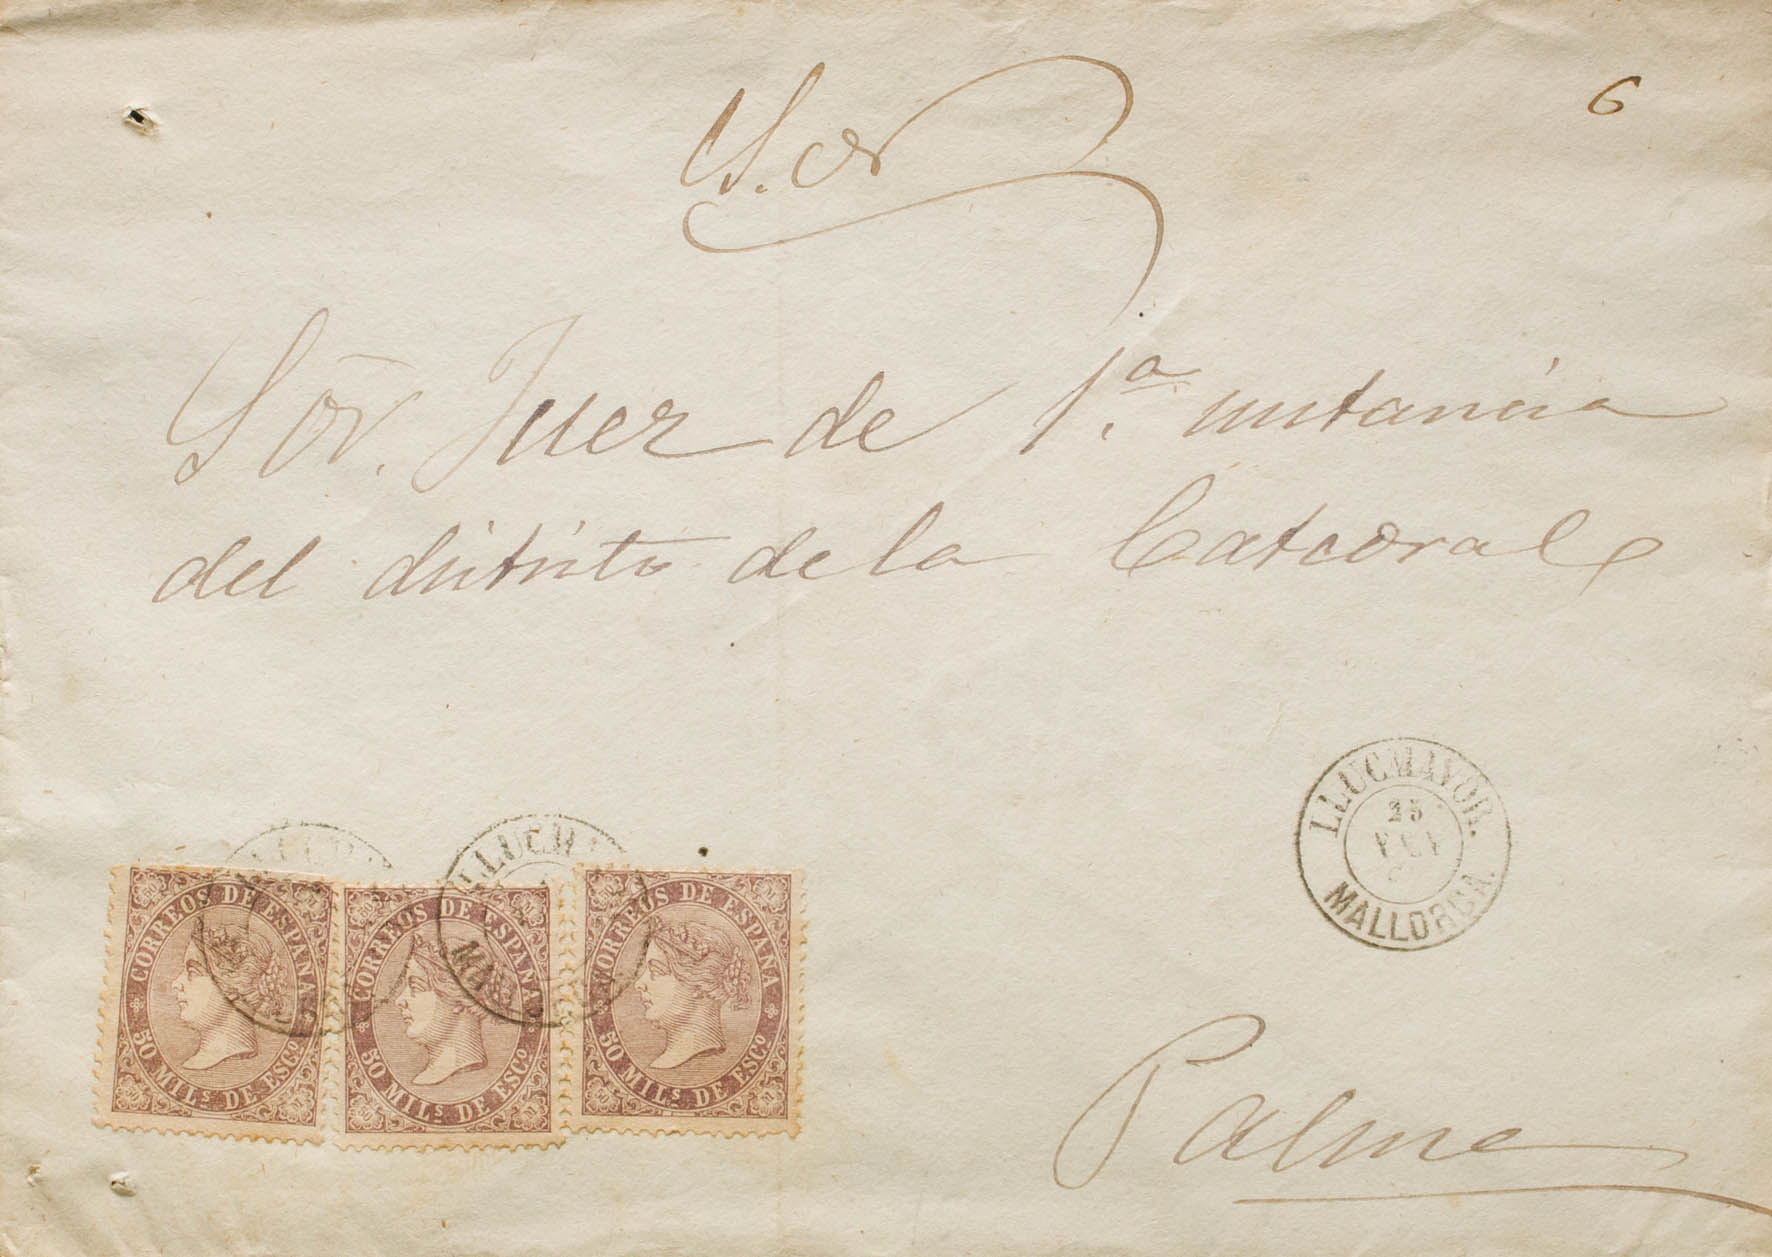 S. or
6
Sor. Juez de 1.ª instancia
del distrito de la Catedral
LLUCMAYOR.
25
MALLORCA.
LLUCM
MA
CORREOS DE ESPAÑA
50 MILS DE ESCO
CORREOS DE ESPAÑA
50 MILS DE ESCO
CORREOS DE ESPAÑA
50 MILS DE ESCO
Palma